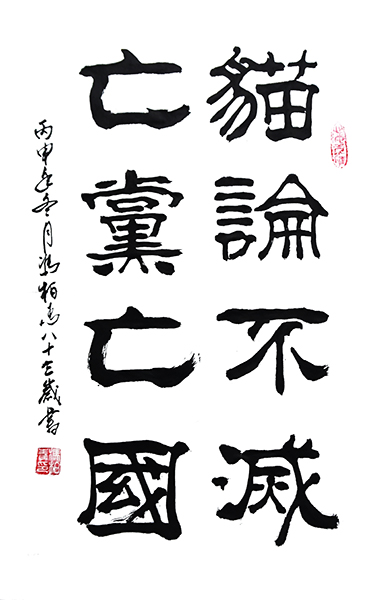 貓論不滅
亡黨亡國
丙申年冬月馮柏志八十三歲書